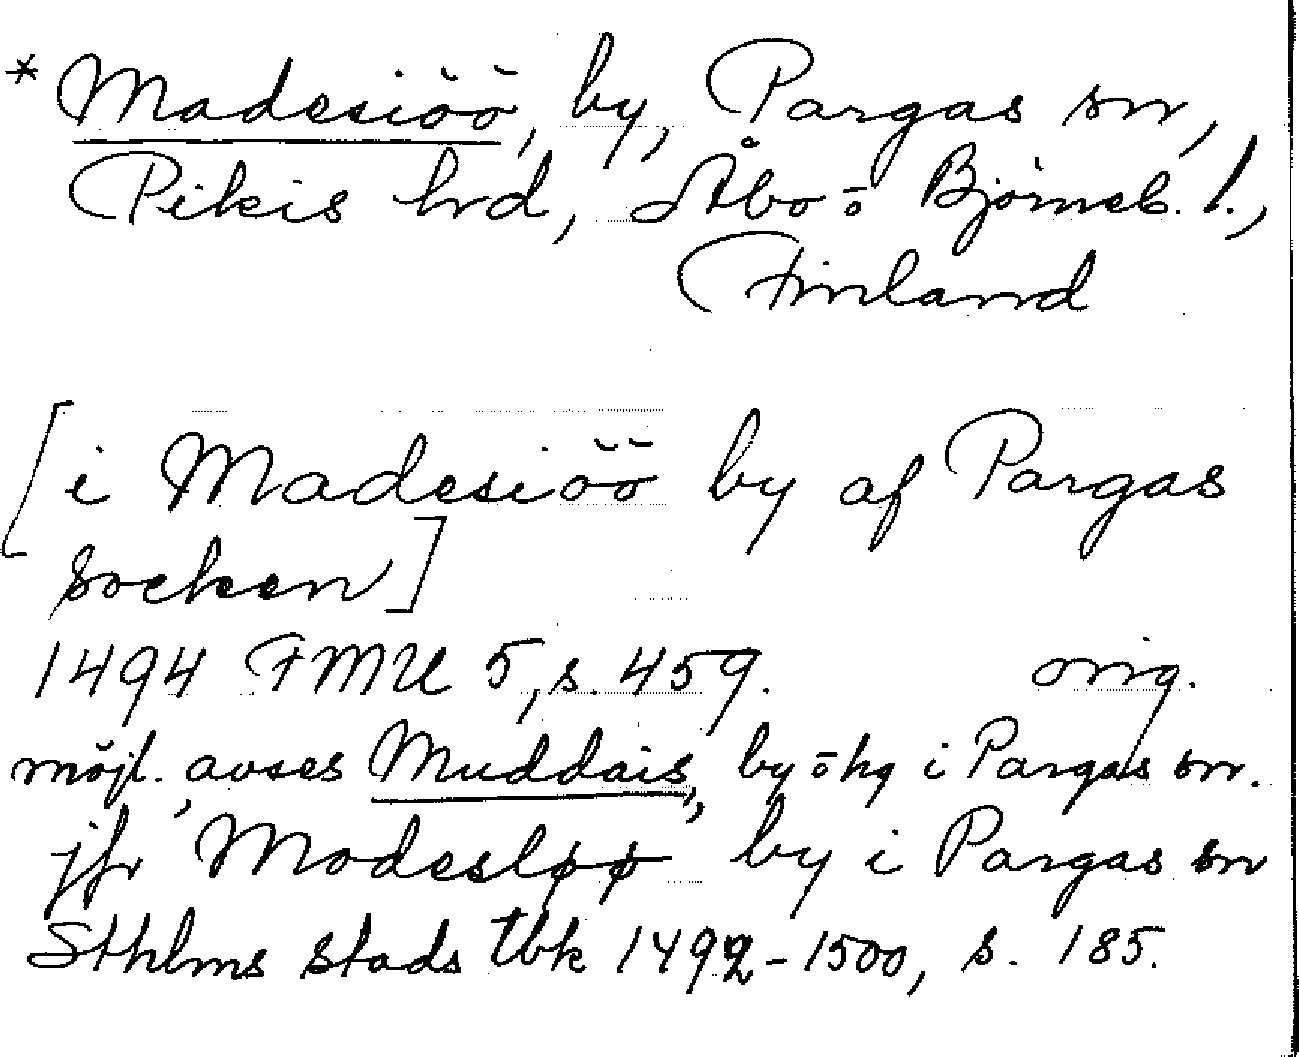 * Madesiöö, by, Pargas sn,
Pikis hrd, Åbo o Björneb. l.,
Finland
[i Madesiöö by af Pargas
socken]
1494 FMU 5, s. 459. orig.
möjl. avses Muddais, by o hg i Pargas sn.
jfr "Modesløø" by i Pargas sn
Sthlms stads tbk 1492-1500, s. 185.